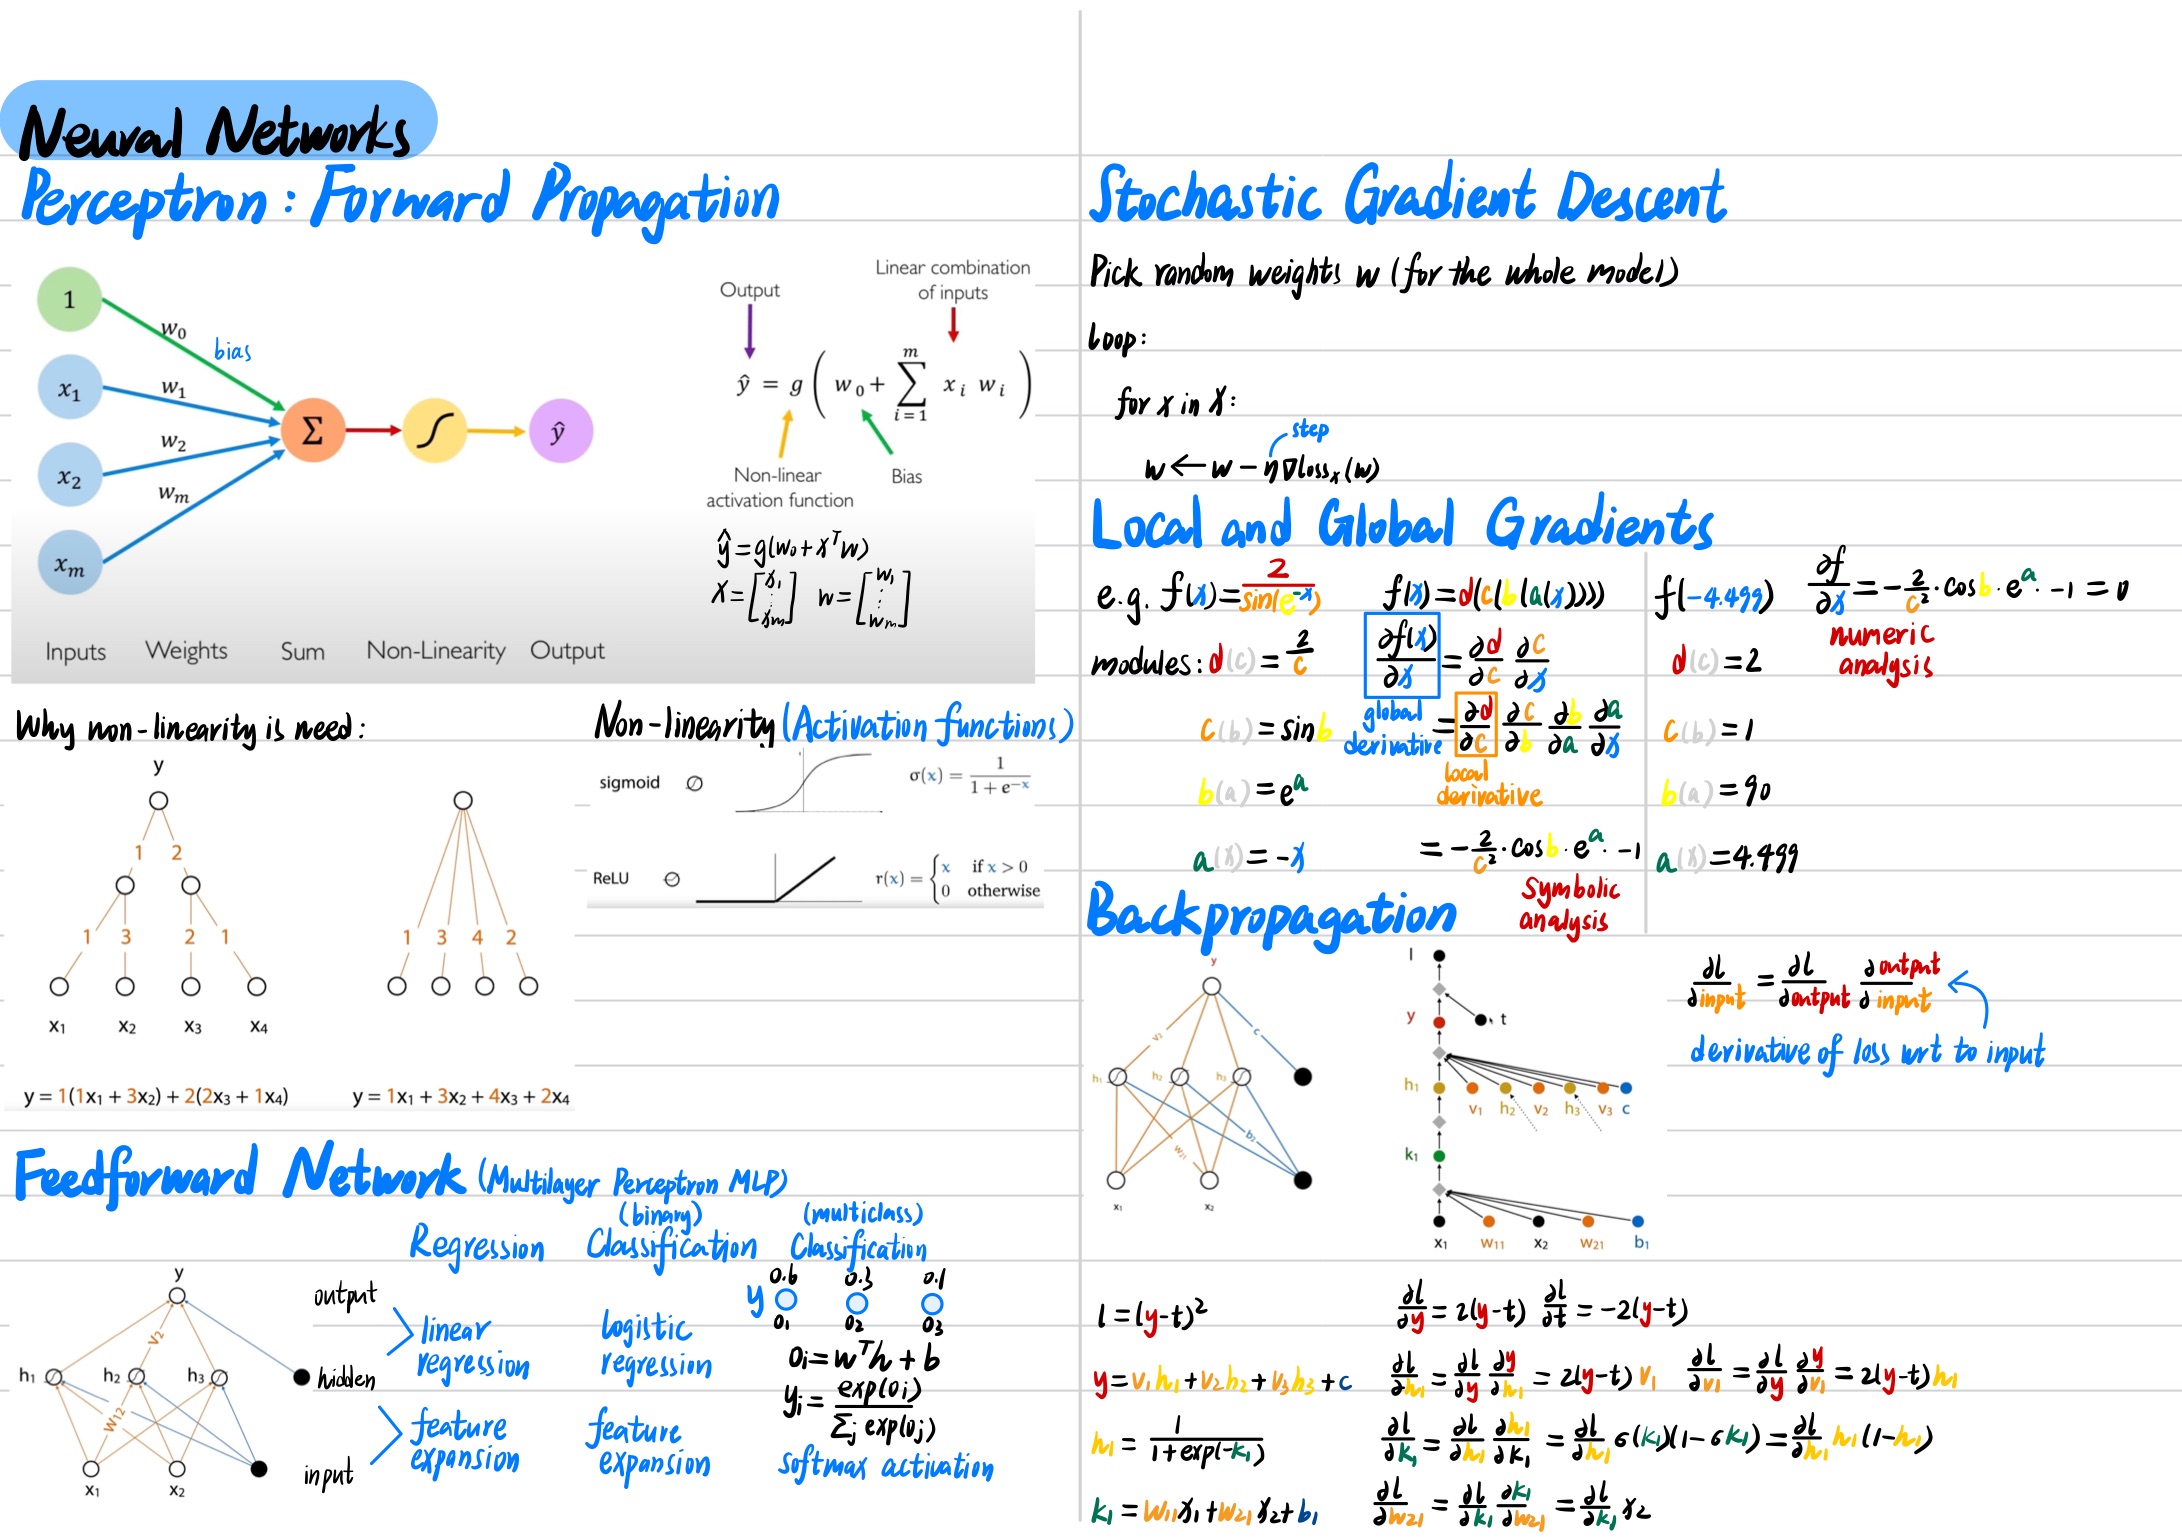 Neural Networks
Perceptron: Forward Propagation
1
w₀
bias
x₁
w₁
x₂
w₂
xₘ
wₘ
Σ
ŷ
Inputs Weights Sum Non-Linearity Output
Output
Linear combination
of inputs
ŷ = g ( w₀ + Σ_{i=1}^{m} xᵢ wᵢ )
Non-linear
activation function
Bias
ŷ = g(w₀ + Xᵀw)
X = [x₁ ⋮ xₘ] w = [w₁ ⋮ wₘ]
Why non-linearity is need:
y
1 2
1 3 2 1
x₁ x₂ x₃ x₄
y = 1(1x₁ + 3x₂) + 2(2x₃ + 1x₄)
1 3 4 2
y = 1x₁ + 3x₂ + 4x₃ + 2x₄
Non-linearity (Activation functions)
sigmoid
σ(x) = 1 / (1 + e⁻ˣ)
ReLU
r(x) = { x if x > 0
0 otherwise
Feedforward Network (Multilayer Perceptron MLP)
y
v₂
h₁ h₂ h₃
w₁₂
x₁ x₂
output
hidden
input
Regression
linear
regression
feature
expansion
(binary)
Classification
logistic
regression
feature
expansion
(multiclass)
Classification
0.6 0.3 0.1
y
o₁ o₂ o₃
oᵢ = wᵀh + b
yᵢ = exp(oᵢ) / Σⱼ exp(oⱼ)
softmax activation
Stochastic Gradient Descent
Pick random weights w (for the whole model)
loop:
for x in X:
step
w ← w − η∇lossₓ(w)
Local and Global Gradients
e.g. f(x) = 2 / sin(e⁻ˣ)
modules: d(c) = 2/c
c(b) = sin b
b(a) = eᵃ
a(x) = -x
f(x) = d(c(b(a(x))))
∂f(x)/∂x = ∂d/∂c ∂c/∂x
global
derivative
= ∂d/∂c ∂c/∂b ∂b/∂a ∂a/∂x
local
derivative
= -2/c² · cos b · eᵃ · -1
Symbolic
analysis
f(-4.499)
d(c) = 2
c(b) = 1
b(a) = 90
a(x) = 4.499
∂f/∂x = -2/c² · cos b · eᵃ · -1 = 0
numeric
analysis
Backpropagation
y
v₂
c
h₁ h₂ h₃
w₂₁
b₂
x₁ x₂
l
y t
h₁ v₁ h₂ v₂ h₃ v₃ c
k₁
x₁ w₁₁ x₂ w₂₁ b₁
∂l/∂input = ∂l/∂output ∂output/∂input
derivative of loss wrt to input
l = (y-t)²
∂l/∂y = 2(y-t) ∂l/∂t = -2(y-t)
y = v₁h₁ + v₂h₂ + v₃h₃ + c
∂l/∂h₁ = ∂l/∂y ∂y/∂h₁ = 2(y-t) v₁ ∂l/∂v₁ = ∂l/∂y ∂y/∂v₁ = 2(y-t) h₁
h₁ = 1 / (1 + exp(-k₁))
∂l/∂k₁ = ∂l/∂h₁ ∂h₁/∂k₁ = ∂l/∂h₁ σ(k₁)(1-σk₁) = ∂l/∂h₁ h₁(1-h₁)
k₁ = w₁₁x₁ + w₂₁x₂ + b₁
∂l/∂w₂₁ = ∂l/∂k₁ ∂k₁/∂w₂₁ = ∂l/∂k₁ x₂